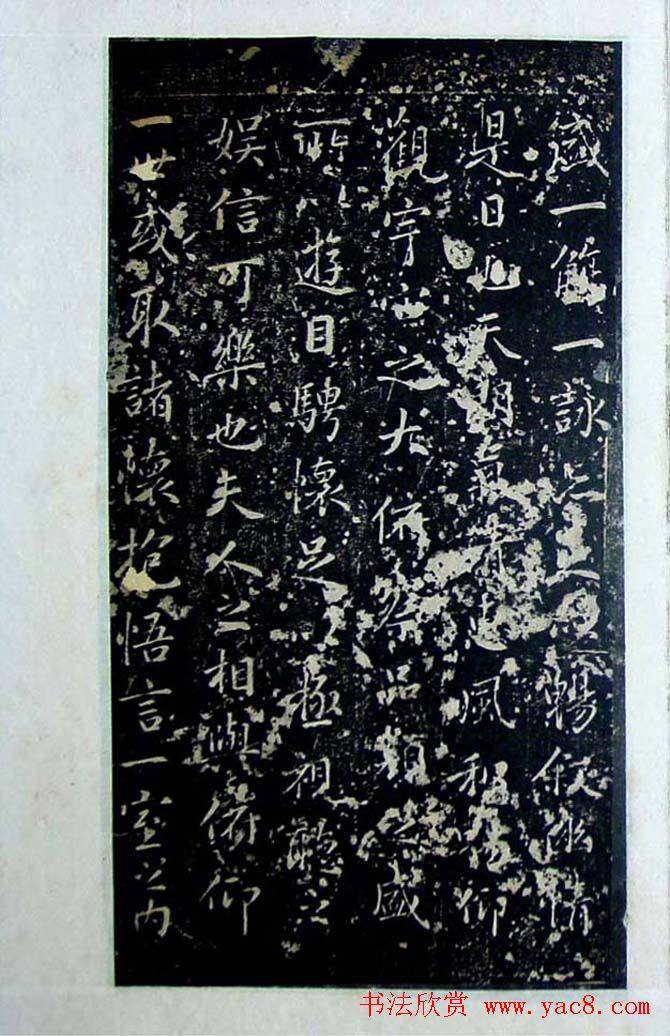 盛一觴一詠亦足以暢敘幽情
是日也天朗氣清惠風和暢仰
觀宇宙之大俯察品類之盛
所以遊目騁懷足以極視聽之
娛信可樂也夫人之相與俯仰
一世或取諸懷抱悟言一室之內
书法欣赏 www.yac8.com